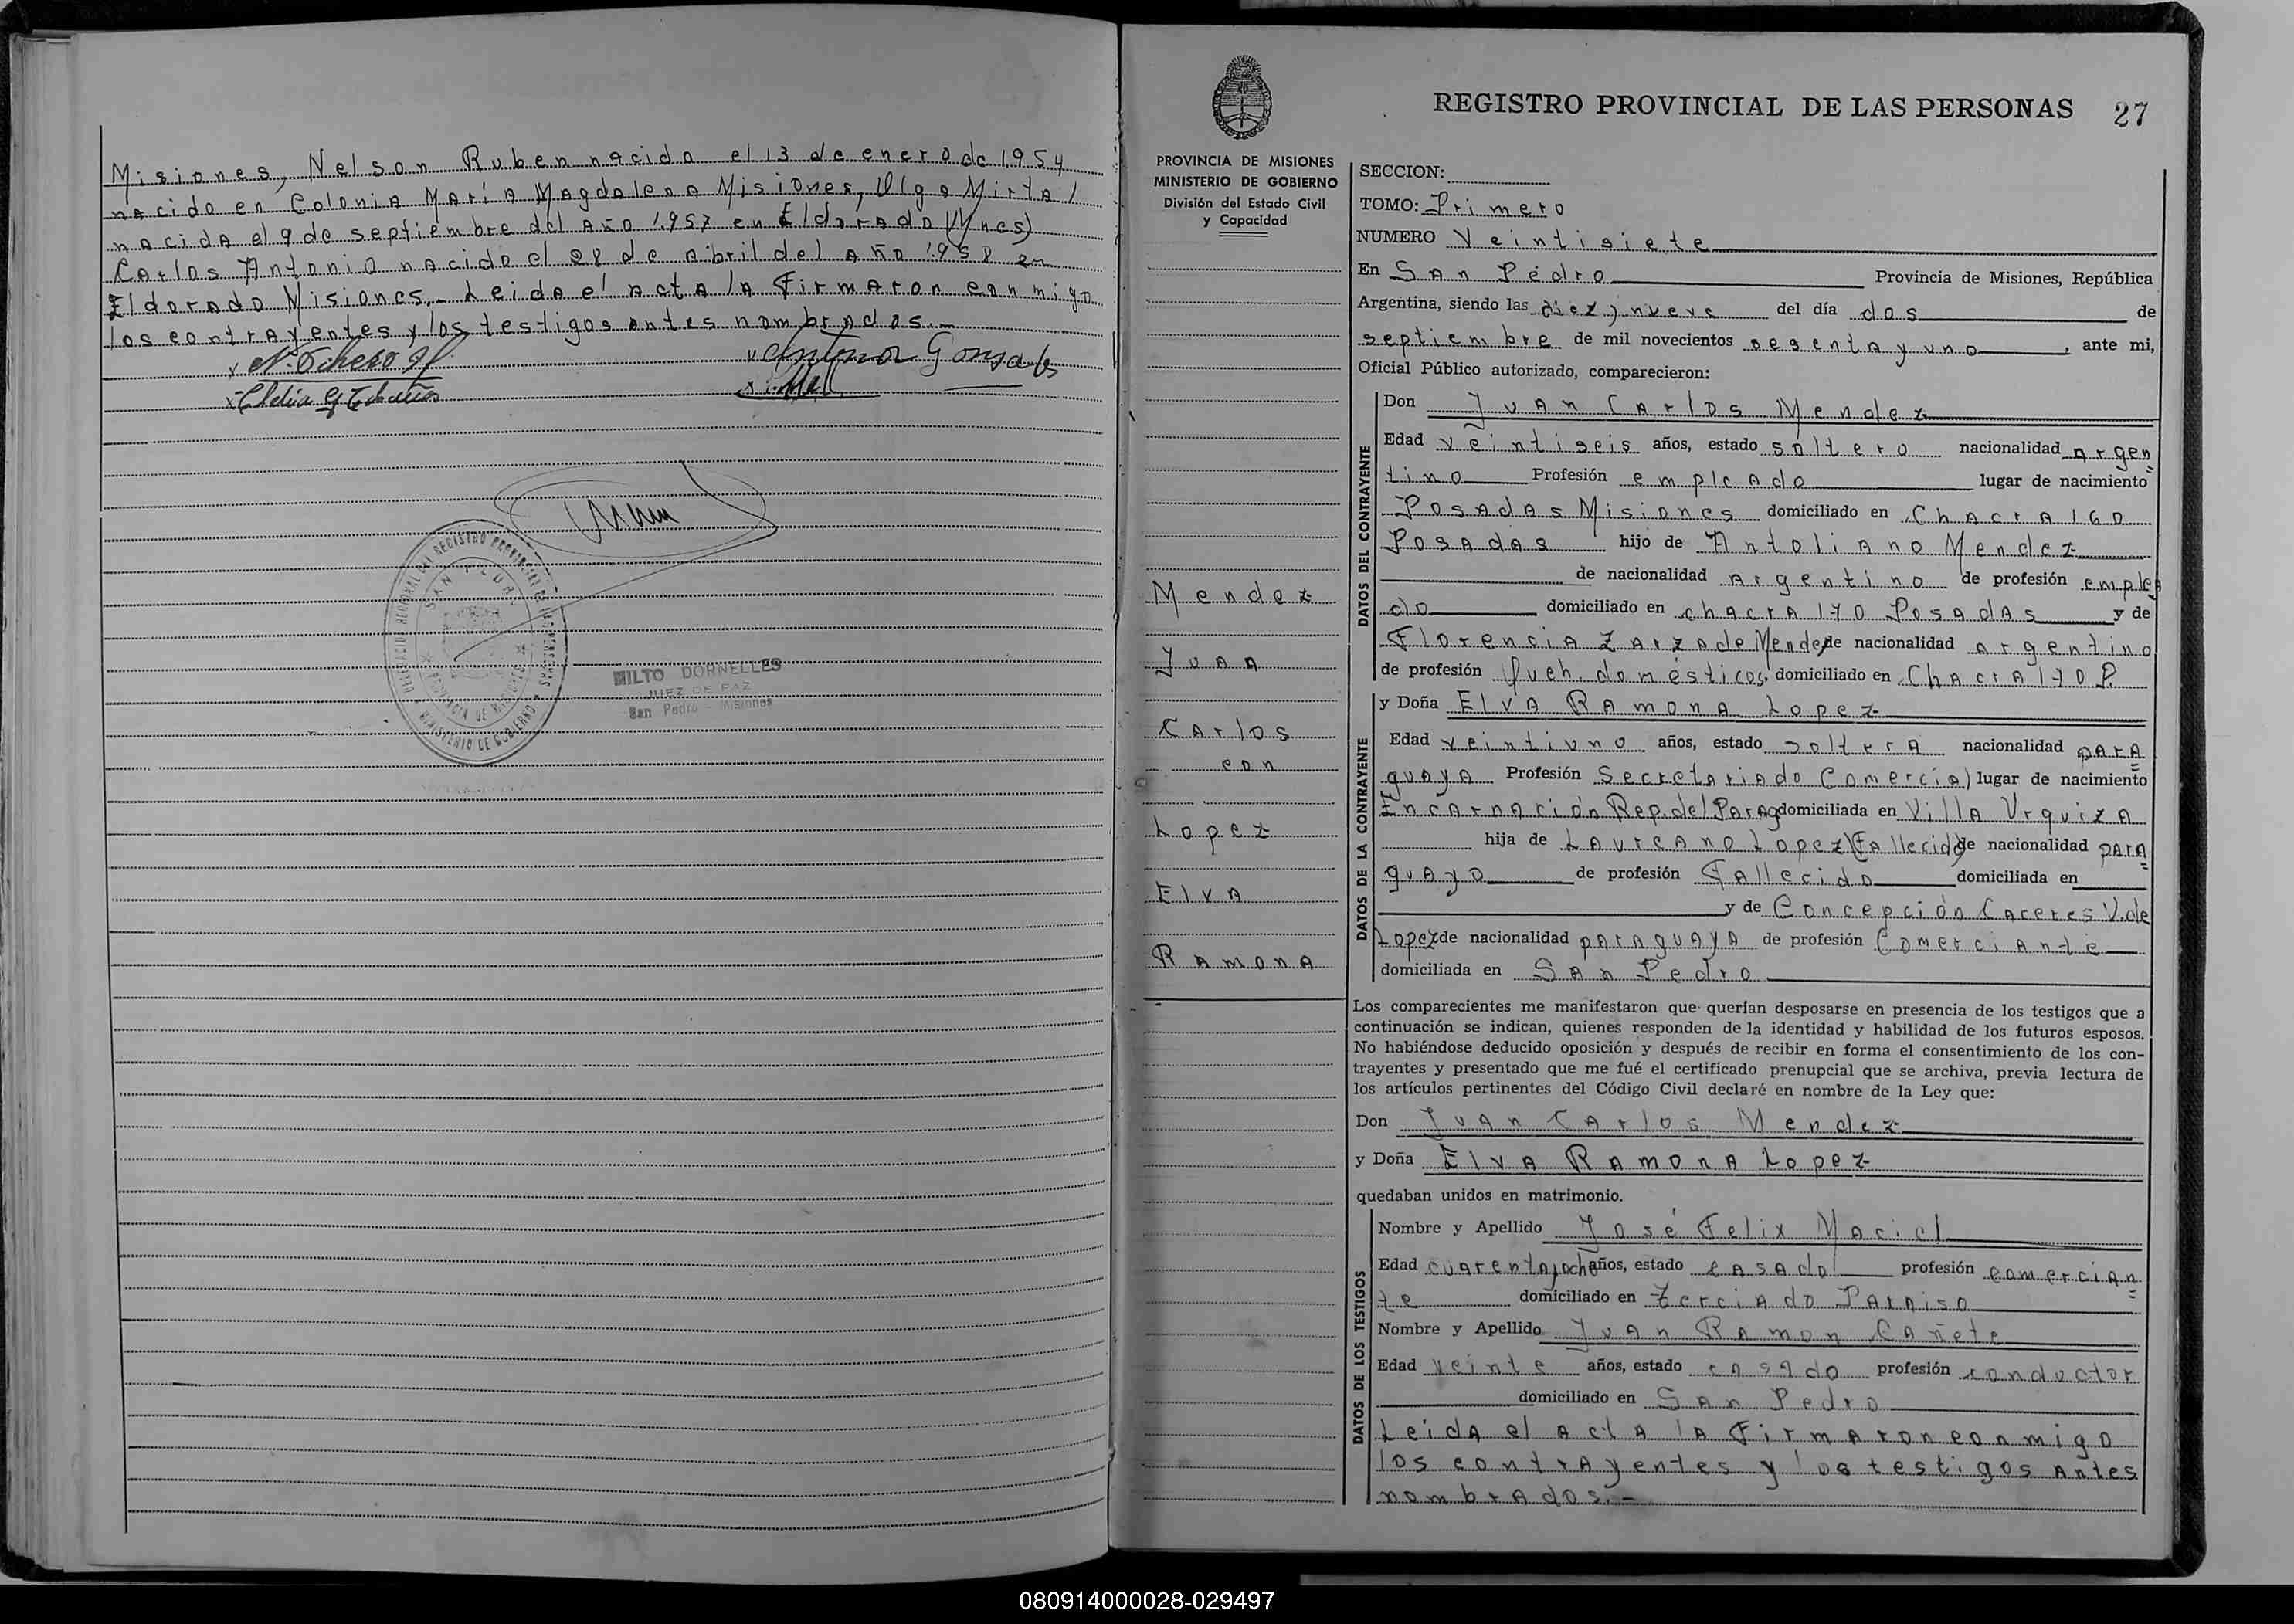 Misiones, Nelson Ruben nacido el 13 de enero de 1954
nacido en Colonia María Magdalena Misiones, Olga Mirta
nacida el 9 de septiembre del año 1957 en Eldorado (Mnes)
Carlos Antonio nacido el 28 de abril del año 1958 en
Eldorado Misiones.- Leida el acta la firmaron conmigo
los contrayentes y los testigos antes nombrados.-
Antenor Gonsales
MILTO DORNELLES
JUEZ DE PAZ
San Pedro - Misiones
REGISTRO PROVINCIAL DE LAS PERSONAS 27
PROVINCIA DE MISIONES
MINISTERIO DE GOBIERNO
División del Estado Civil
y Capacidad
Mendez
Juan
Carlos
con
Lopez
Elva
Ramona
SECCION:
TOMO: Primero
NUMERO Veintisiete
En San Pedro Provincia de Misiones, República
Argentina, siendo las diez y nueve del día dos de
septiembre de mil novecientos sesenta y uno, ante mi,
Oficial Público autorizado, comparecieron:
DATOS DEL CONTRAYENTE
Don Juan Carlos Mendez
Edad veintiseis años, estado soltero nacionalidad argen
tino Profesión empleado lugar de nacimiento
Posadas Misiones domiciliado en Chacra 160
Posadas hijo de Antoliano Mendez
de nacionalidad argentino de profesión emplea
do domiciliado en chacra 170 Posadas y de
Florencia Zarza de Mendez de nacionalidad argentino
de profesión Queh. domésticos, domiciliado en Chacra 170 P.
DATOS DE LA CONTRAYENTE
y Doña Elva Ramona Lopez
Edad veintiuno años, estado soltera nacionalidad para
guaya Profesión Secretariado Comercial lugar de nacimiento
Encarnación Rep. del Parag domiciliada en Villa Urquiza
hija de Laureano Lopez (Fallecido) de nacionalidad para
guayo de profesión Fallecido domiciliada en
y de Concepción Caceres V. de
Lopez de nacionalidad paraguaya de profesión Comerciante
domiciliada en San Pedro
Los comparecientes me manifestaron que querían desposarse en presencia de los testigos que a
continuación se indican, quienes responden de la identidad y habilidad de los futuros esposos.
No habiéndose deducido oposición y después de recibir en forma el consentimiento de los con-
trayentes y presentado que me fué el certificado prenupcial que se archiva, previa lectura de
los artículos pertinentes del Código Civil declaré en nombre de la Ley que:
Don Juan Carlos Mendez
y Doña Elva Ramona Lopez
quedaban unidos en matrimonio.
DATOS DE LOS TESTIGOS
Nombre y Apellido José Felix Maciel
Edad cuarenta y ocho años, estado casado profesión comercian
te domiciliado en Terciado Paraiso
Nombre y Apellido Juan Ramon Cañete
Edad veinte años, estado casado profesión conductor
domiciliado en San Pedro
Leida el acta la Firmaron conmigo
los contrayentes y los testigos antes
nombrados.-
080914000028-029497